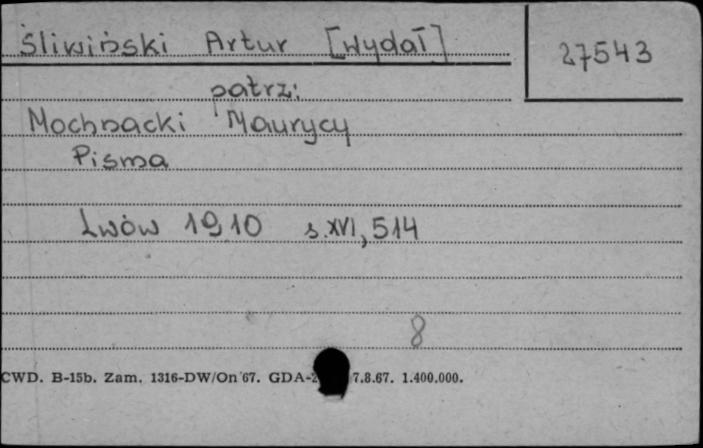 Śliwiński Artur [Wydał]
27543
patrz:
Mochnacki Maurycy
Pisma
Lwów 1910 s. XVI, 514
8
CWD. B-15b. Zam. 1316-DW/On 67. GDA- 7.8.67. 1.400.000.